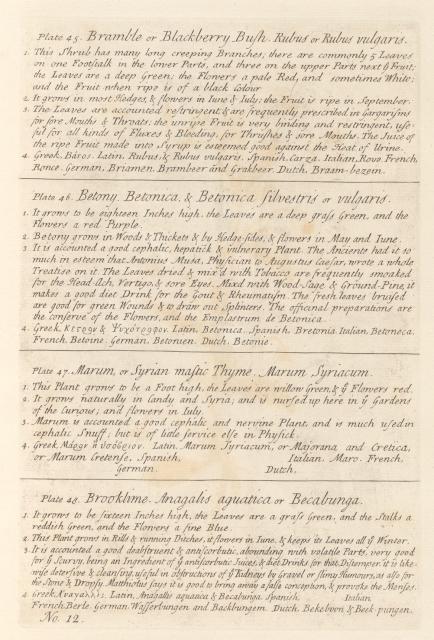 Plate 45. Bramble or Blackberry Bush. Rubus or Rubus vulgaris.
1. This Shrub has many long creeping Branches, there are commonly 5 Leaves
on one Footstalk in the lower Parts, and three on the upper Parts next ye Fruit;
the Leaves are a deep Green; the Flowers a pale Red, and sometimes White;
and the Fruit when ripe is of a black Colour
2. It grows in most Hedges, & flowers in Iune & Iuly; the Fruit is ripe in September.
3. The Leaves are accounted restringent, & are frequently prescribed in Gargarisms
for sore Mouths & Throats; the unripe Fruit is very binding and restringent, use-
ful for all kinds of Fluxes & Bleeding, for Thrushes & sore Mouths. The Juice of
the ripe Fruit made into Syrup is esteemed good against the Heat of Urine.
4. Greek, Βάτος. Latin, Rubus, & Rubus vulgaris. Spanish, Carza. Italian, Rovo. French,
Ronce. German, Briamen, Brambeer and Grakbeer. Dutch, Braam-bezem.
Plate 46. Betony. Betonica, & Betonica silvestris or vulgaris.
1. It grows to be eighteen Inches high, the Leaves are a deep grass Green, and the
Flowers a red Purple.
2. Betony grows in Woods & Thickets & by Hedge-sides, & flowers in May and Iune.
3. It is accounted a good cephalic, hepatick & vulnerary Plant. The Ancients had it so
much in esteem that Antonius Musa, Physician to Augustus Caesar, wrote a whole
Treatise on it. The Leaves dried & mix'd with Tobacco are frequently smoaked
for the Head-Ach, Vertigo, & sore Eyes. Mixd with Wood-Sage & Ground-Pine, it
makes a good diet Drink for the Gout & Rheumatism. The fresh leaves bruised
are good for green Wounds & to draw out Splinters. The officinal preparations are
the conserve of the Flowers, and the Emplastrum de Betonica.
4. Greek, Κέστρον & Ψυχότροφον. Latin, Betonica. Spanish, Bretonia. Italian, Betoneca.
French, Betoine. German, Betonien. Dutch, Betonie.
Plate 47. Marum, or Syrian mastic Thyme. Marum Syriacum.
1. This Plant grows to be a Foot high, the Leaves are willow Green, & ye Flowers red.
2. It grows naturally in Candy and Syria; and is nursed up here in ye Gardens
of the Curious; and flowers in Iuly.
3. Marum is accounted a good cephalic and nervine Plant, and is much used in
cephalic Snuff; but is of little service else in Physick.
4. Greek, Latin, Marum Syriacum, or Majorana and Cretica,
or Marum Cretense, Spanish, Italian, Maro. French,
German, Dutch,
Plate 48. Brooklime. Anagalis aquatica or Becabunga.
1. It grows to be sixteen Inches high, the Leaves are a grass Green, and the Stalks a
reddish Green, and the Flowers a fine Blue.
2. This Plant grows in Rills & running Ditches, it flowers in Iune, & keeps its Leaves all ye Winter.
3. It is accounted a good deobstruent & antiscorbutic, abounding with volatile Parts, very good
for ye Scurvy, being an Ingredient of ye antiscorbutic Juices, & diet Drinks for that Distemper. it is like-
wise detersive & cleansing, useful in obstructions of ye Kidneys by Gravel or slimy Humours, as also for
the Stone & Dropsy. Matthiolus says it is good to bring away a false conception, & provoke the Menses.
4. Greek, Latin, Anagallis aquatica & Becabunga. Spanish, Italian,
French, Berle. German, Wasserbungen and Backbungem. Dutch, Bekeboom, & Beek-pungen.
No. 12.